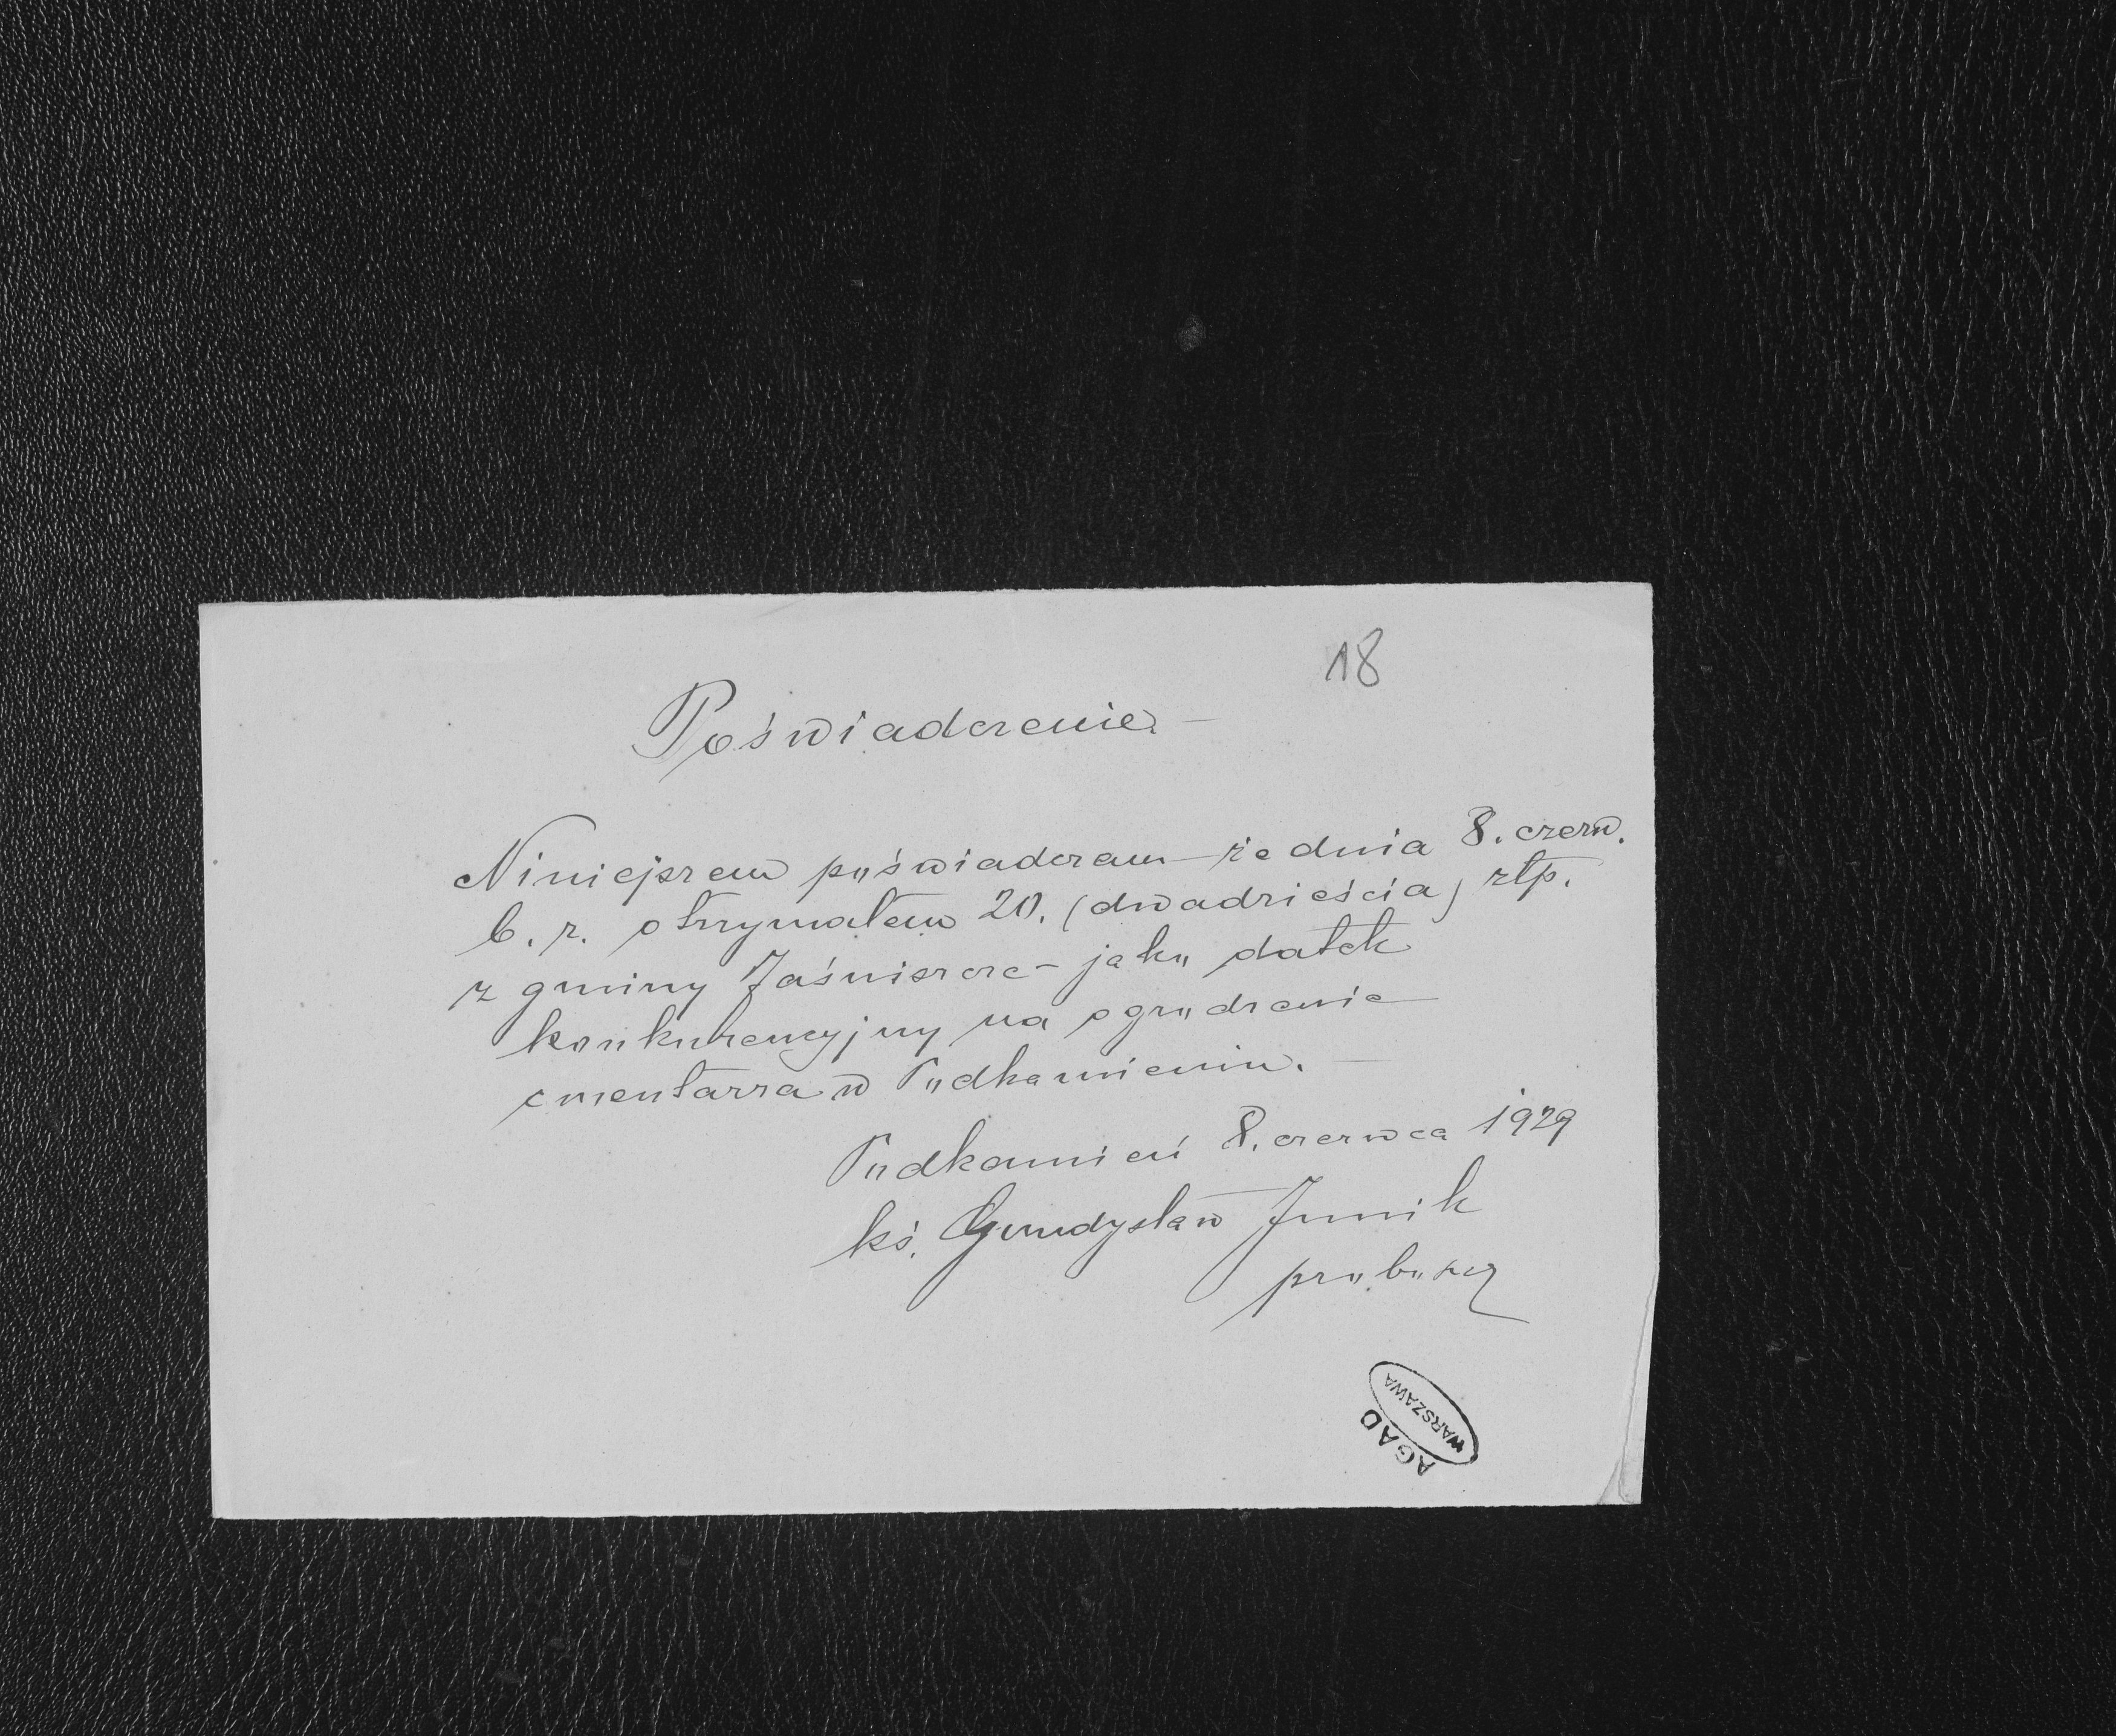 18
Poświadczenie. –
Niniejszem poświadczam – że dnia 8. czerw.
b. r. otrzymałem 20. (dwadzieścia) złp.
z gminy Jaśniszcze – jako datek
konkurencyjny na ogrodzenie
cmentarza w Podkamieniu. –
Podkamień 8. czerwca 1929
ks. Gundysław Junik
proboszcz
AGAD
WARSZAWA